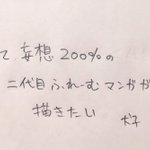 て 妄想200%の
二代目ふれーむマンガが
描きたい